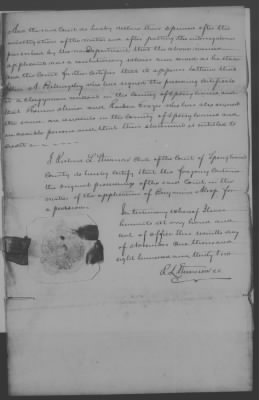 And the said Court do hereby declare their opinion after the
investigation of the matter and after putting the interrogatories
prescribed by the war Department that the above named
applicant was a revolutionary soldier and served as he states
and the Court further certifies that it appears to them that
John A. Billingsley who has signed the preceding certificate
is a clergyman resident in the County of Spotsylvania and
that who has also signed
the same are residents in the County of Spotsylvania and
are credible persons and that their statement is entitled to
credit
I Robert L. Clerk of the Court of Spotsylvania
County do hereby certify that the foregoing contains
the original proceedings of the said Court in the
matter of the application of Benjamin for
a pension.
In testimony whereof I have
hereunto set my hand and
seal of office this day
of one thousand
eight hundred and thirty two
R L